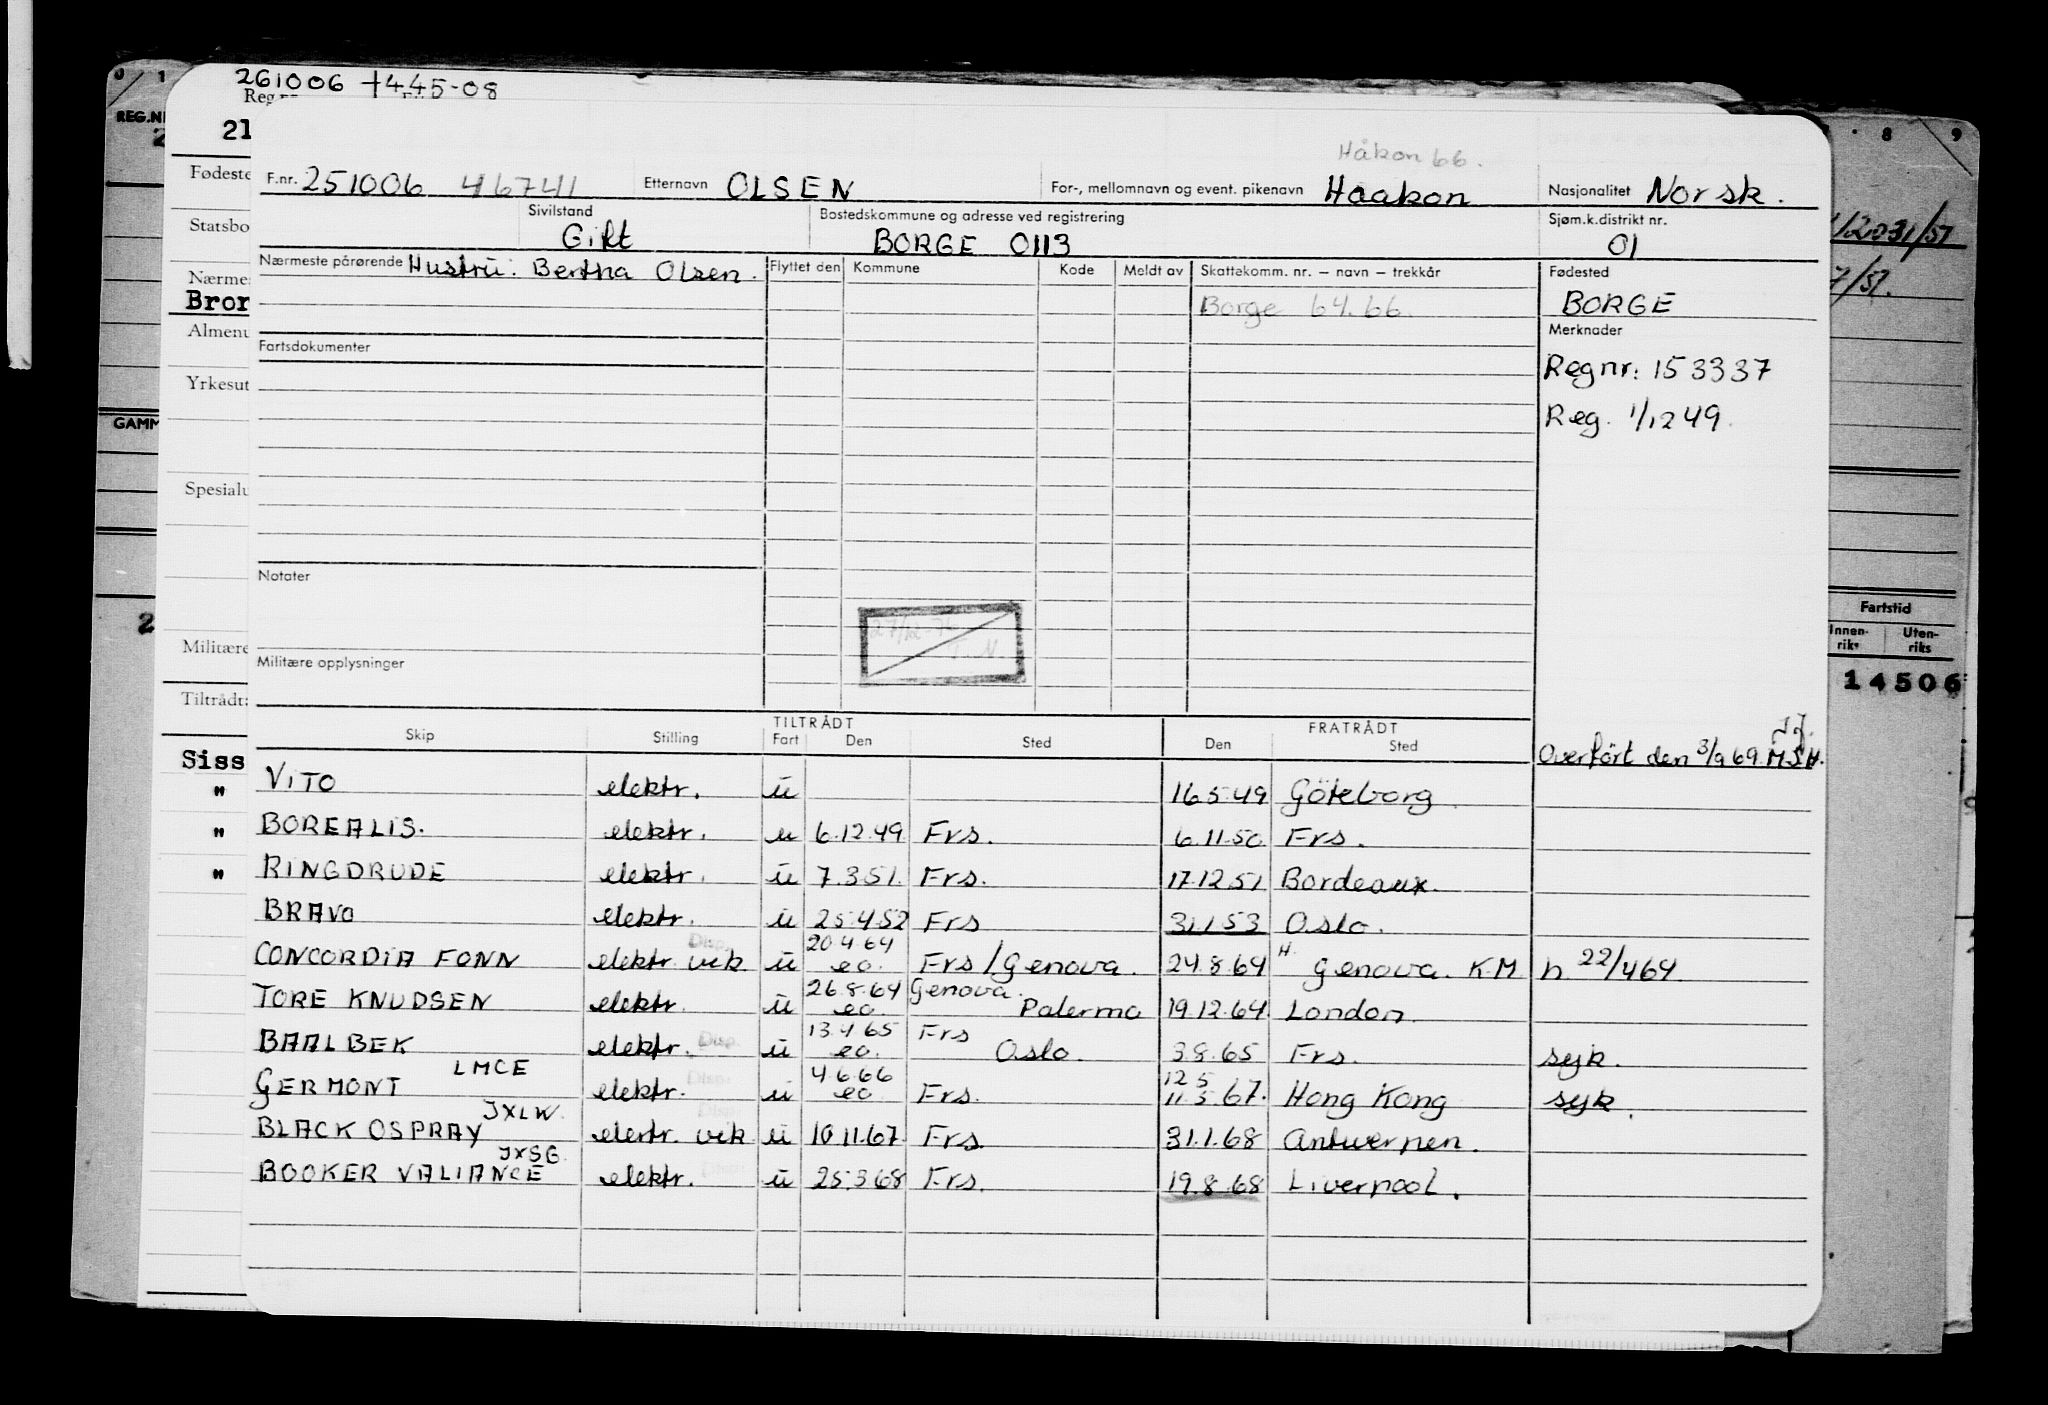 261006 +445-08
Reg.nr.
21
Håkon 66.
F.nr. 251006 46741 Etternavn OLSEN For-, mellomnavn og event. pikenavn Haakon Nasjonalitet Norsk.
Sivilstand Gift Bostedskommune og adresse ved registrering BORGE 0113 Sjøm.k.distrikt nr. 01
Nærmeste pårørende Hustru: Bertha Olsen. Flyttet den Kommune Kode Meldt av Skattekomm. nr. – navn – trekkår Fødested
Borge 64.66. BORGE
Merknader
Fartsdokumenter
Regnr: 153337
Reg. 1/12 49.
Notater
27/12-76
T.N.
Militære opplysninger
TILTRÅDT FRATRÅDT
Skip Stilling Fart Den Sted Den Sted
Overført den 3/9 69. M.S.H.
VITO elektr. u 16.5.49 Göteborg.
BOREALIS. elektr. u 6.12.49 Frs. 6.11.50 Frs.
RINGDRUDE elektr. u 7.3.51. Frs. 17.12.51 Bordeaux.
BRAVO elektr. u 25.4.52 Frs 31.1.53 Oslo.
CONCORDIA FONN elektr. vik Disp. u 20.4.64 eo. Frs/Genova. 24.8.64 H Genova. KM h 22/4 64.
TORE KNUDSEN elektr. u 26.8.64 eo. Genova. Palermo 19.12.64 London.
BAALBEK elektr. Disp. u 13.4.65 eo. Frs Oslo. 3.8.65 Frs. syk.
GERMONT LMCE elektr. Disp. u 4.6.66 eo. Frs. 12.5 11.5 67. Hong Kong syk.
BLACK OSPRAY JXLW. elektr. vik u 10.11.67. Frs. 31.1.68 Antwerpen.
BOOKER VALIANCE JXSG. elektr. u 25.3.68 Frs. 19.8.68 Liverpool.
REG.NR
Fødeste
Statsbo
Nærmes
Bror
Almenu
Yrkesut
GAMM
Spesialu
Militære
Tiltrådt:
Siss
"
"
"
0 1
8 9
7/51.
Fartstid
Innen-riks Uten-riks
14506